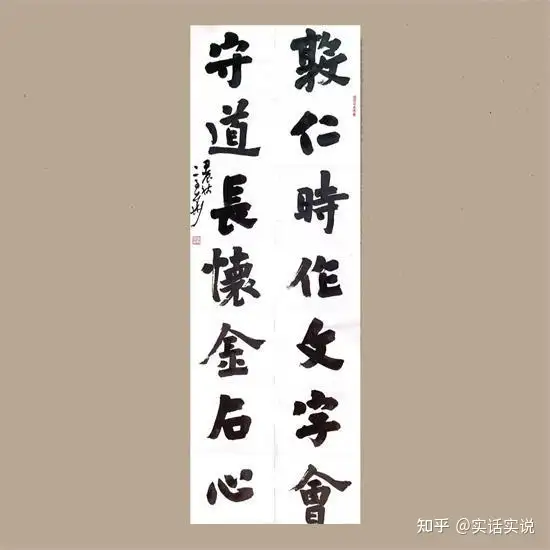 敦仁時作文字會
守道長懷金石心
知乎 @实话实说